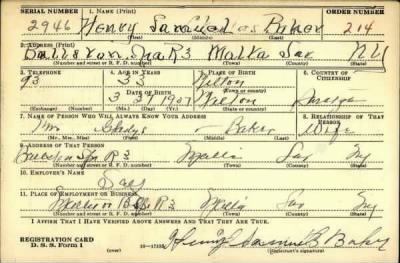 SERIAL NUMBER 1. NAME (Print) ORDER NUMBER
2946 Henry Baker 214
(First) (Middle) (Last)
2. ADDRESS (Print)
Ballston Spa R3 Malta Sar N Y
(Number and street or R. F. D. number) (Town) (County) (State)
3. TELEPHONE 4. AGE IN YEARS 5. PLACE OF BIRTH 6. COUNTRY OF CITIZENSHIP
33 Wilton
DATE OF BIRTH (Town or county)
3 1907 Wilton
(Exchange) (Number) (Mo.) (Day) (Yr.) (State or country)
7. NAME OF PERSON WHO WILL ALWAYS KNOW YOUR ADDRESS 8. RELATIONSHIP OF THAT PERSON
Mrs Gladys Baker Wife
(Mr., Mrs., Miss) (First) (Middle) (Last)
9. ADDRESS OF THAT PERSON
Ballston Spa R3 Malta Sar Ny
(Number and street or R. F. D. number) (Town) (County) (State)
10. EMPLOYER'S NAME
11. PLACE OF EMPLOYMENT OR BUSINESS
R3 Malta Sar Ny
(Number and street or R. F. D. number) (Town) (County) (State)
I AFFIRM THAT I HAVE VERIFIED ABOVE ANSWERS AND THAT THEY ARE TRUE.
REGISTRATION CARD
D. S. S. Form 1 Henry Samuel Baker
(Registrant's signature)